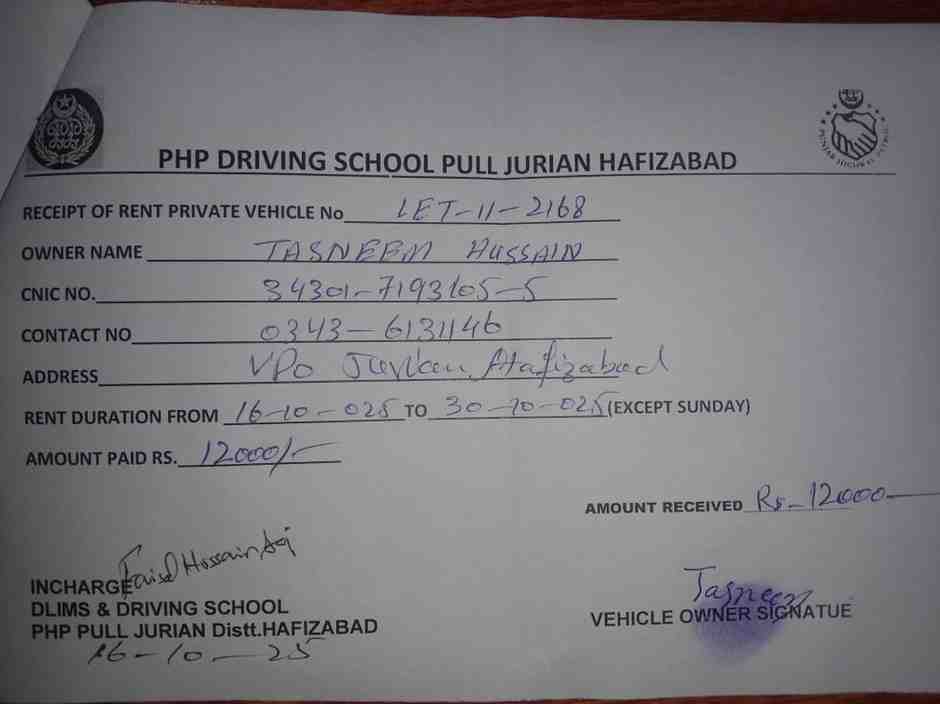 PHP DRIVING SCHOOL PULL JURIAN HAFIZABAD
RECEIPT OF RENT PRIVATE VEHICLE No LET-11-2168
OWNER NAME TASNEEM HUSSAIN
CNIC NO. 34301-7193105-5
CONTACT NO 0343-6131146
ADDRESS VPO Hafizabad
RENT DURATION FROM 16-10-025 TO 30-10-025 (EXCEPT SUNDAY)
AMOUNT PAID RS. 12000/-
AMOUNT RECEIVED Rs-12000
Hussain
INCHARGE
DLIMS & DRIVING SCHOOL
PHP PULL JURIAN Distt.HAFIZABAD
16-10-25
Tasneem
VEHICLE OWNER SIGNATUE